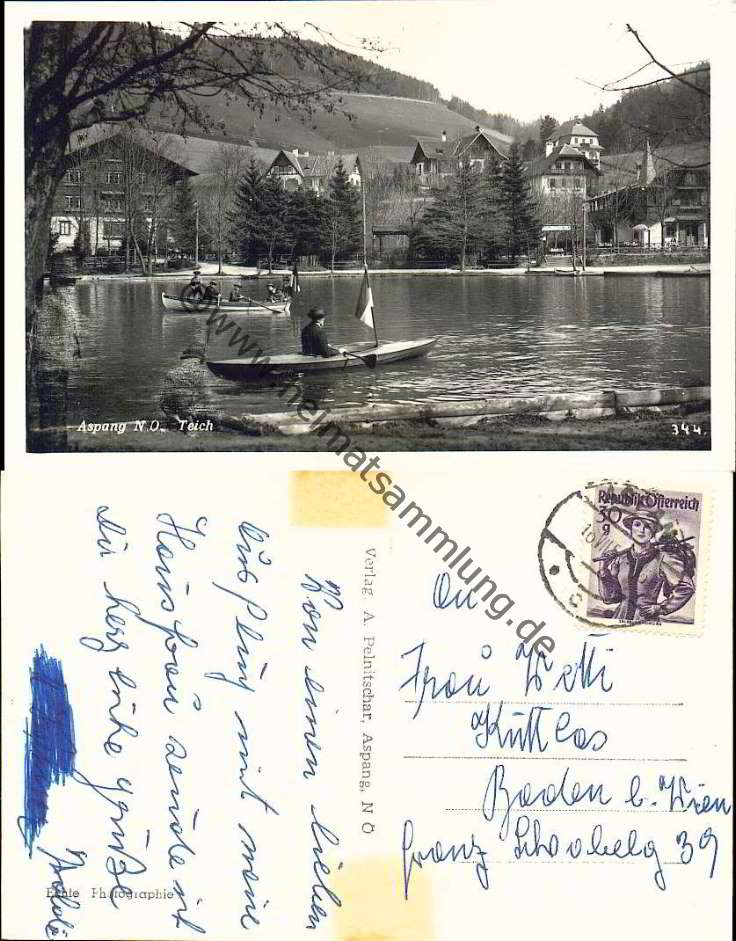 Aspang N.Ö. Teich
344.
© www.heimatsammlung.de
Republik Österreich
30
g
Verlag A. Pelnitschar, Aspang, N Ö
Echte Photographie
Von einen lieben
Ausflug mit meine
Hausfrau sende ich
Dir herzliche Grüße
An
Frau Betti
Kuttlas
Baden b. Wien
39